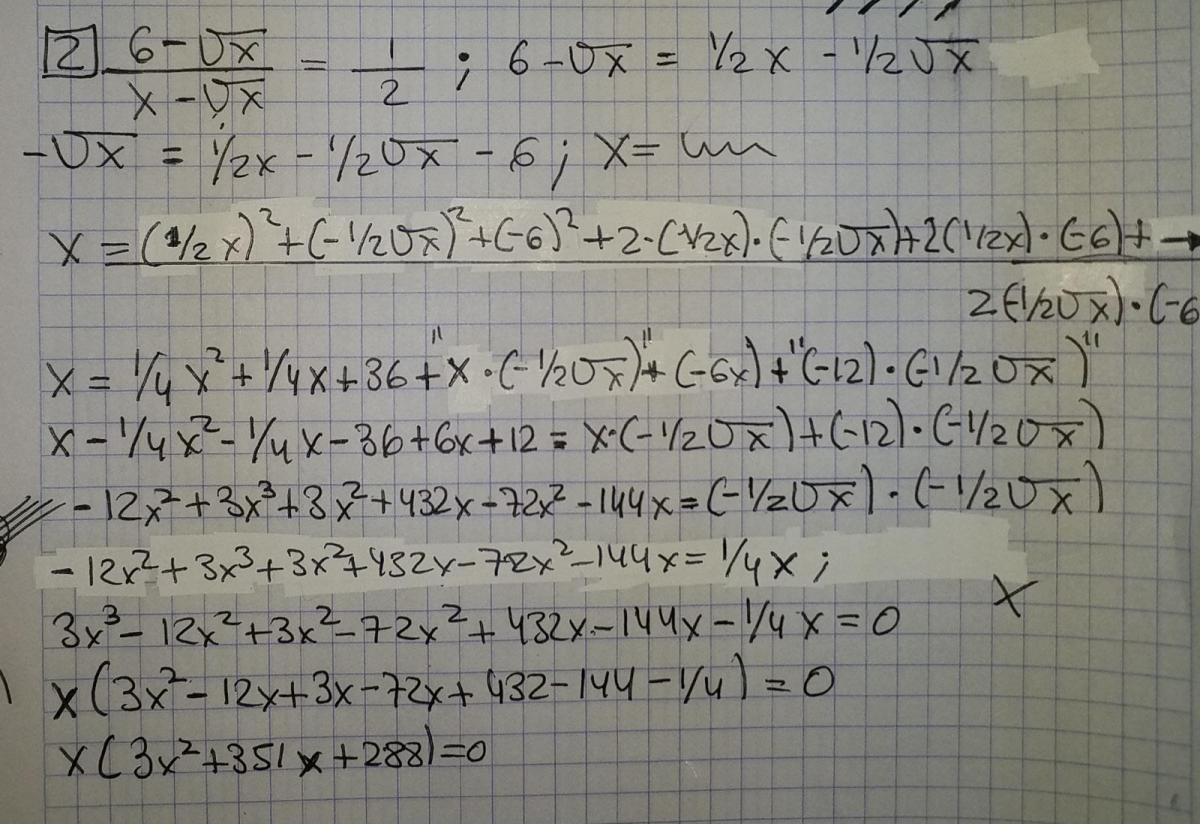 2 (6-√x)/(x-√x) = 1/2 ; 6-√x = 1/2 x - 1/2√x
-√x = 1/2x - 1/2√x - 6 ; x=
x = (1/2 x)² + (-1/2√x)² + (-6)² + 2·(1/2x)·(-1/2√x)+2(1/2x)·(-6)+ →
2(-1/2√x)·(-6
x = 1/4 x² + 1/4x + 36 + "x·(-1/2√x)" + (-6x) + "(-12)·(-1/2√x)"
x - 1/4x² - 1/4x - 36 + 6x + 12 = x·(-1/2√x)+(-12)·(-1/2√x)
-12x² + 3x³ + 3x² + 432x - 72x² - 144x = (-1/2√x)·(-1/2√x)
-12x² + 3x³ + 3x² + 432x - 72x² - 144x = 1/4x ;
x
3x³ - 12x² + 3x² - 72x² + 432x - 144x - 1/4x = 0
x(3x² - 12x + 3x - 72x + 432 - 144 - 1/4) = 0
x(3x² + 351x + 288) = 0